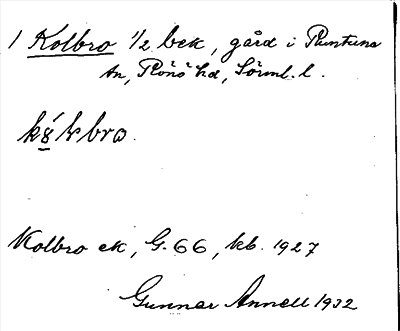 1 Kolbro 1/2 bek, gård i Runtuna
sn, Rönö hd, Sörml. l.
Kolbro ek, G. 66, kb. 1927
Gunnar Annell 1932